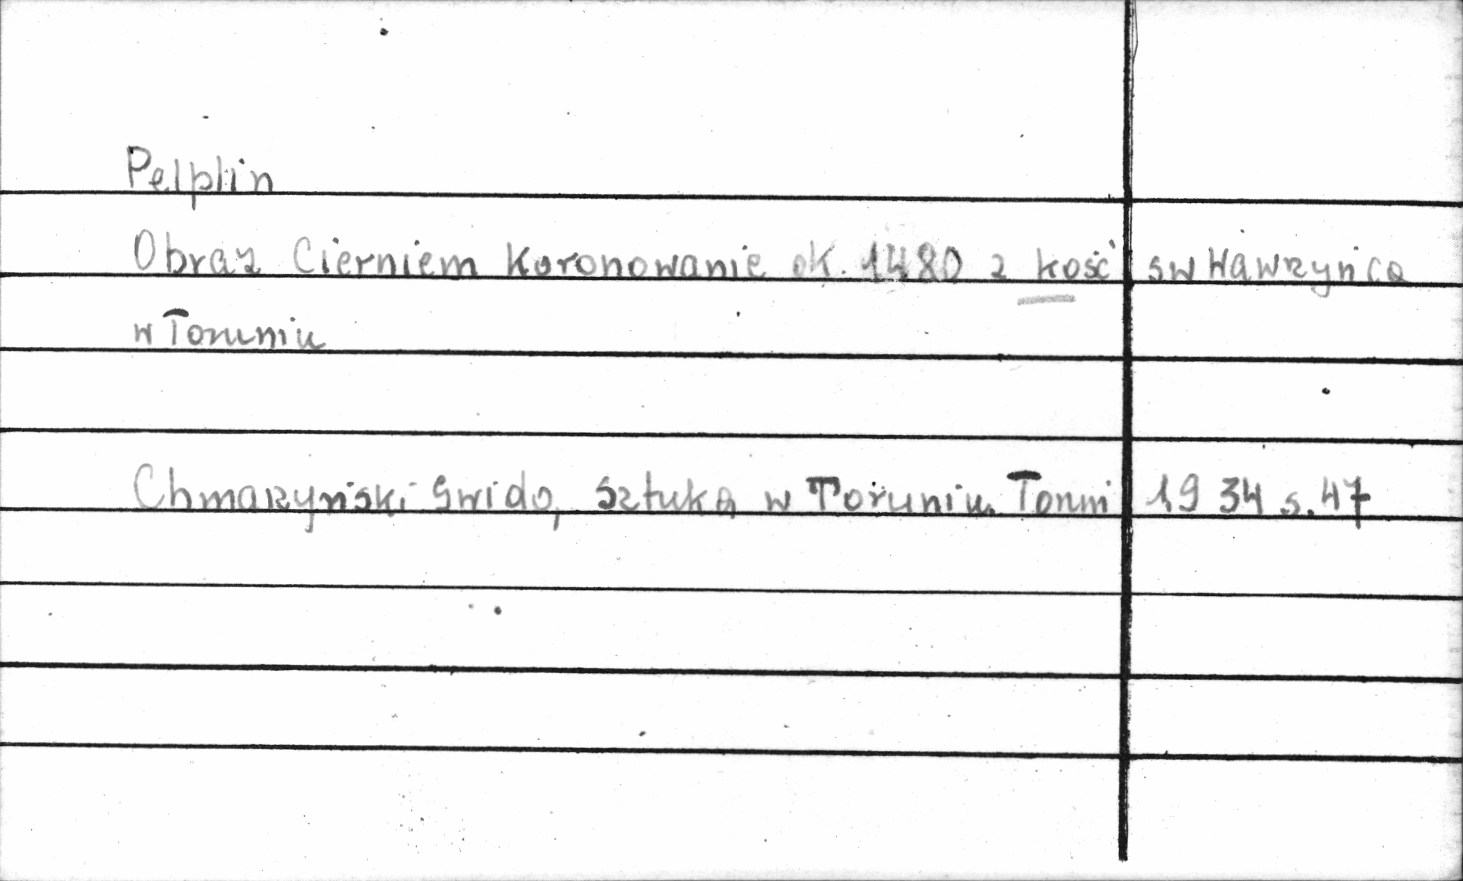 Pelplin
Obraz Cierniem Koronowanie ok. 1480 z kość sw Wawrzyńca
w Toruniu
Chmarzyński Gwido, Sztuka w Toruniu. Toruń 1934 s. 47